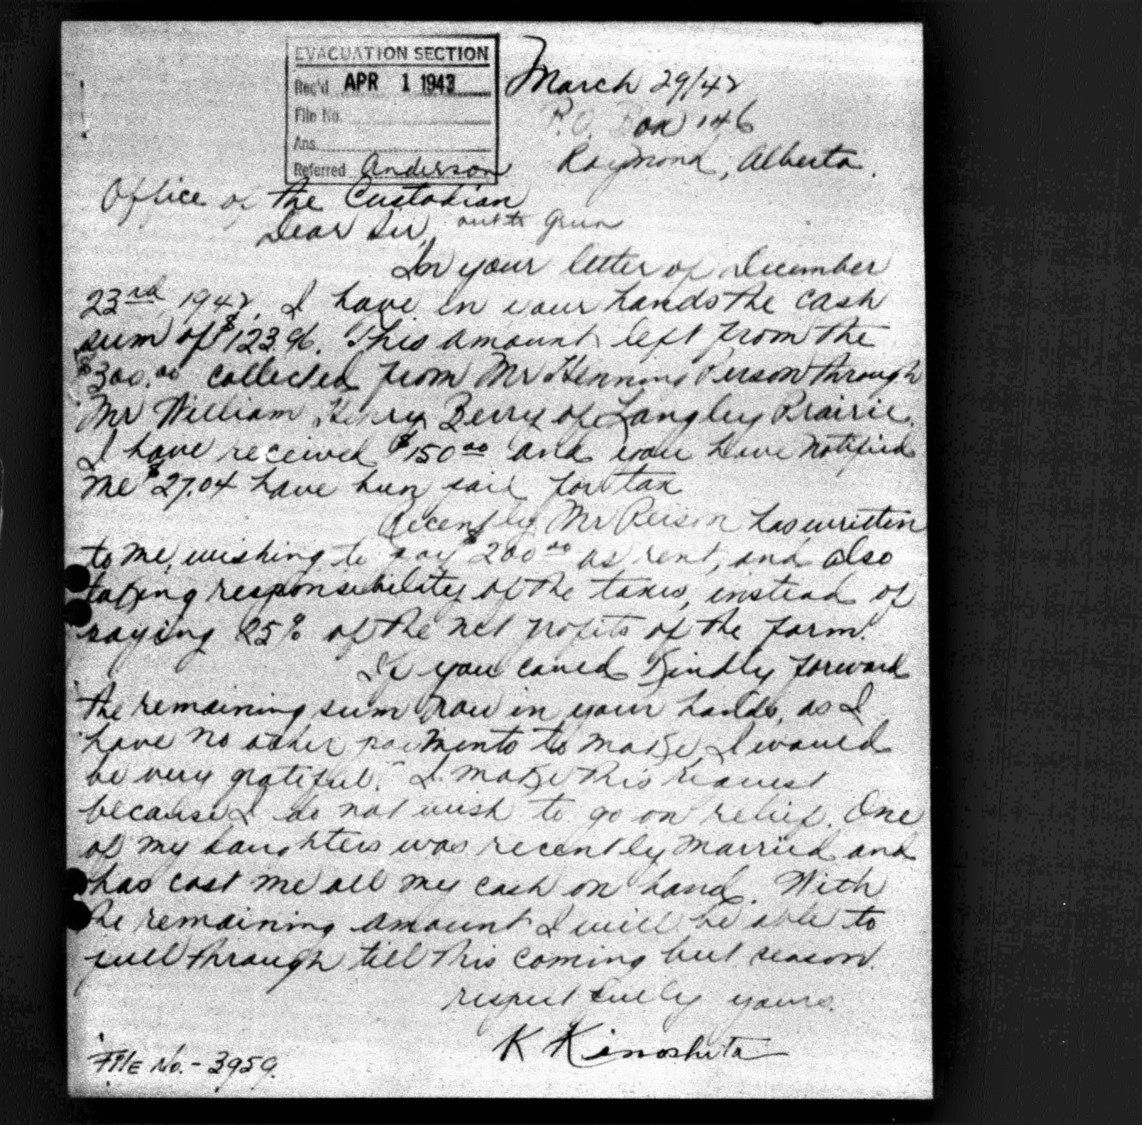 EVACUATION SECTION
Rec'd APR 1 1943
File No.
Ans.
Referred Anderson
March 29/42
P.O. Box 146
Raymond, Alberta.
Office of the Custodian
Dear Sir,
In your letter of December
23rd, 1942, I have in your hands the cash
sum of $123.96. This amount left from the
$300.00 collected from Mr Henning Person through
Mr William Henry Berry of Langley Prairie.
I have received $150.00 and you have notified
me $27.04 have been paid for tax
Recently Mr Person has written
to me, wishing to pay $200.00 as rent, and also
taking responsibility of the taxes, instead of
paying 25% of the net profits of the farm.
If you could kindly forward
the remaining sum now in your hands, as I
have no other payments to make, I would
be very grateful. I make this request
because I do not wish to go on relief. One
of my daughters was recently married and
has cost me all my cash on hand. With
the remaining amount I will be able to
pull through till this coming beet season.
respectfully yours.
K Kinoshita
File No. - 3959.